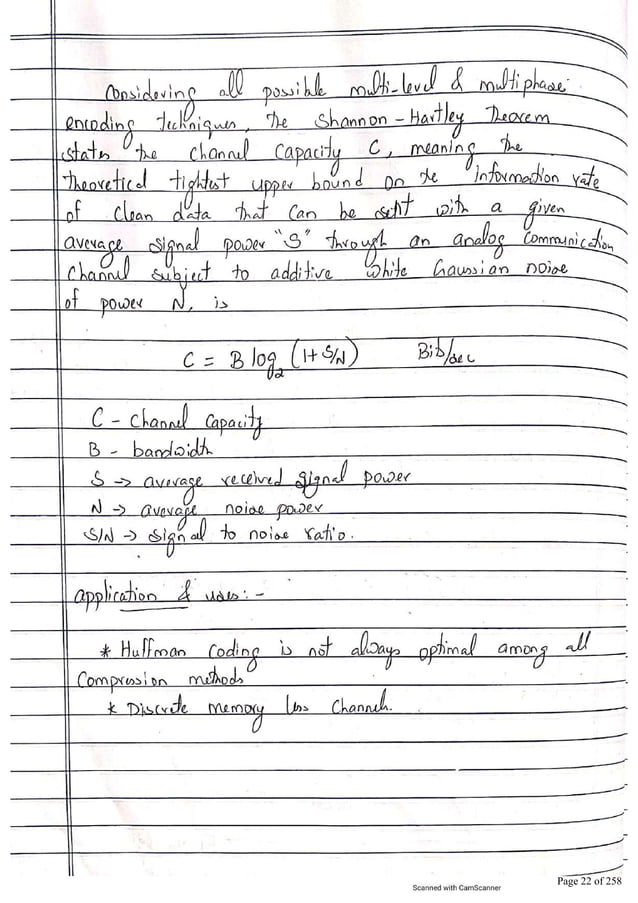 Considering all possible multi-level & multiphase
encoding techniques, the Shannon - Hartley Theorem
states the channel capacity C, meaning the
theoretical tightest upper bound on the information rate
of clean data that can be sent with a given
average signal power "S" through an analog communication
channel subject to additive white Gaussian noise
of power N, is
C = B log₂ (1+ S/N) Bits/sec
C - channel capacity
B - bandwidth
S → average received signal power
N → average noise power
S/N → signal to noise ratio.
application & uses: -
* Huffman coding is not always optimal among all
Compression methods
* Discrete memory less channels.
Scanned with CamScanner
Page 22 of 258